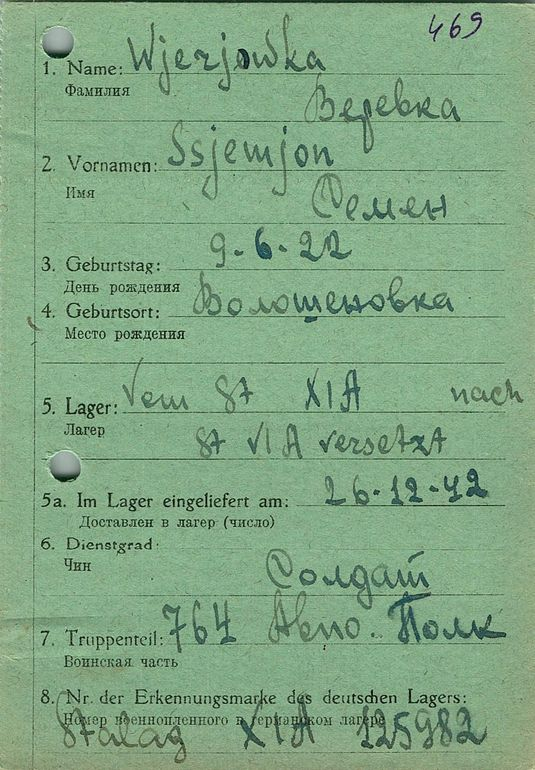 469
1. Name: Wjerjowka
Фамилия
Веревка
2. Vornamen: Ssjemjon
Имя
Семен
9-6-22
3. Geburtstag:
День рождения
4. Geburtsort: Волошеновка
Место рождения
5. Lager: Vom St XI A nach
Лагер
St VI A versetzt
5a. Im Lager eingeliefert am: 26-12-42
Доставлен в лагер (число)
6. Dienstgrad:
Чин
Солдат
7. Truppenteil: 764 Авто. Полк
Воинская часть
8. Nr. der Erkennungsmarke des deutschen Lagers:
Номер военнопленного в германском лагере
Stalag XI A 125982